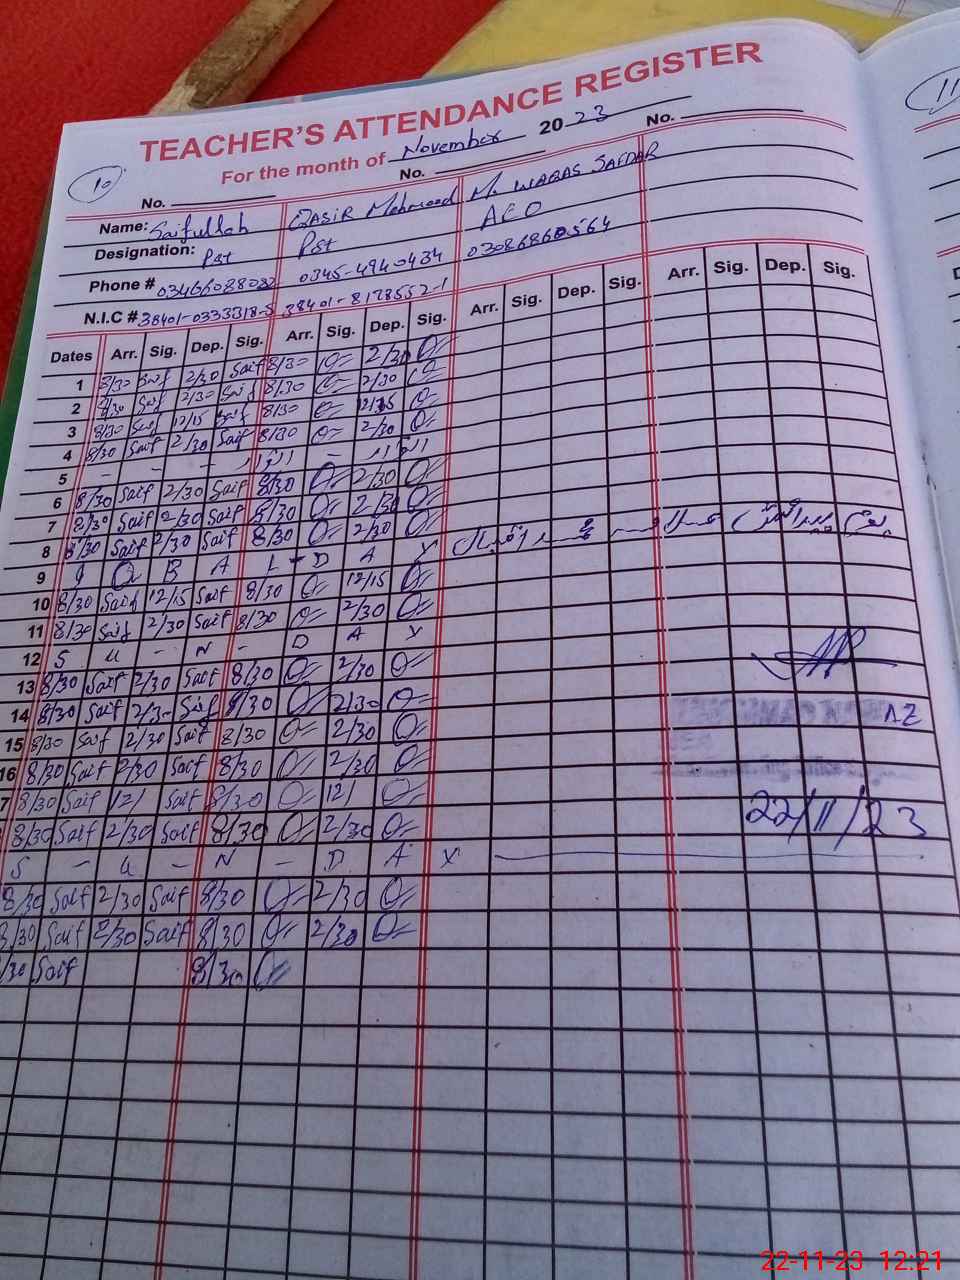 TEACHER'S ATTENDANCE REGISTER
For the month of November 2023
10
11
No. No. No.
Name: Saifullah QASIR Mehmood M. WAQAS SAFDAR
Designation: Pst Pst AEO
Phone # 0345-4940434 03086860564
N.I.C # 38401-0333318-5 38401-8178552-1
Dates Arr. Sig. Dep. Sig. Arr. Sig. Dep. Sig. Arr. Sig. Dep. Sig. Arr. Sig. Dep. Sig.
1 8/30 Saif 2/30 Saif 8/30 2/30
2 8/30 Saif 2/30 Saif 8/30 2/30
3 8/30 Saif 12/15 Saif 8/30 12/15
4 8/30 Saif 2/30 Saif 8/30 2/30
5 - - - اتوار - اتوار
6 8/30 Saif 2/30 Saif 8/30 2/30
7 8/30 Saif 2/30 Saif 8/30 2/30
8 8/30 Saif 2/30 Saif 8/30 2/30
9 I Q B A L - D A Y
10 8/30 Saif 12/15 Saif 8/30 12/15
11 8/30 Saif 2/30 Saif 8/30 2/30
12 S U - N - D A Y
13 8/30 Saif 2/30 Saif 8/30 2/30
14 8/30 Saif 2/30 Saif 8/30 2/30
15 8/30 Saif 2/30 Saif 8/30 2/30
16 8/30 Saif 2/30 Saif 8/30 2/30
7 8/30 Saif 12/ Saif 8/30 12/
8/30 Saif 2/30 Saif 8/30 2/30
22/11/23
S - U - N - D A Y
8/30 Saif 2/30 Saif 8/30 2/30
8/30 Saif 2/30 Saif 8/30 2/30
/30 Saif 8/30
22-11-23 12:21